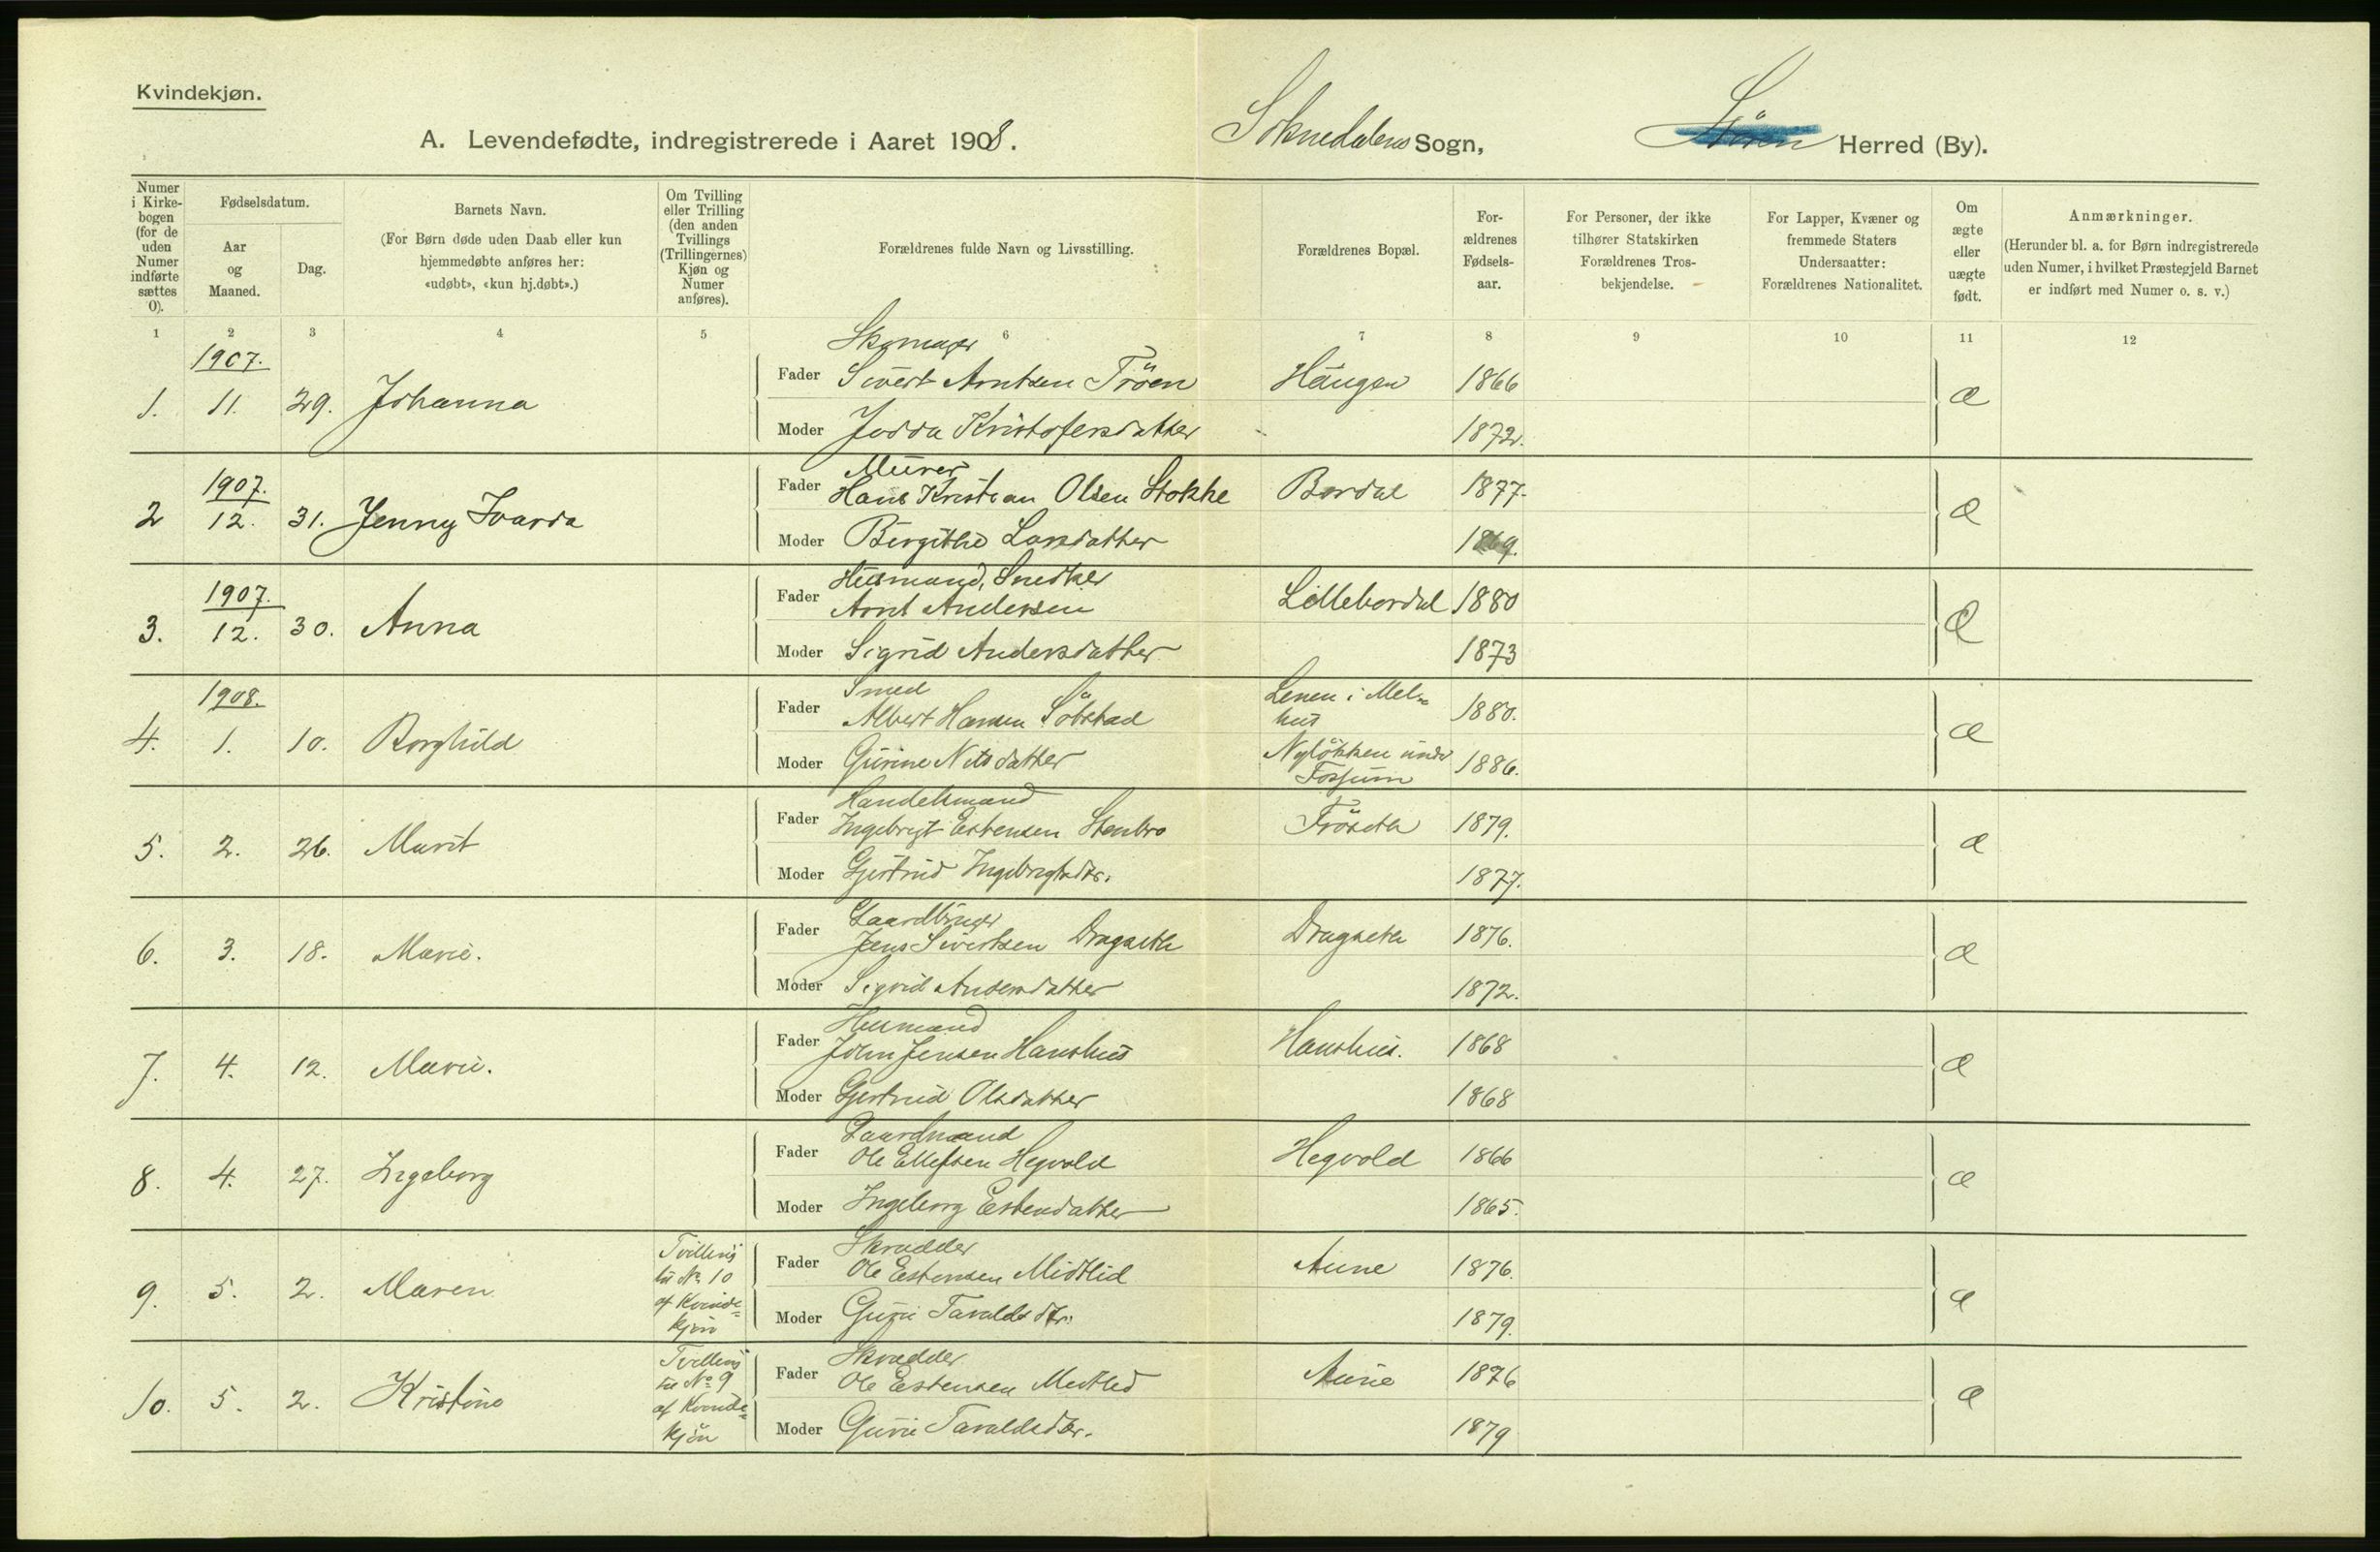 Kvindekjøn.
A. Levendefødte, indregistrerede i Aaret 1908.
Soknedalens Sogn, Støren Herred (By).
Numer i Kirkebogen (for de uden Numer indførte sættes 0).
Fødselsdatum.
Aar og Maaned.
Dag.
Barnets Navn.
(For Børn døde uden Daab eller kun hjemmedøbte anføres her: «udøbt», «kun hj.døbt».)
Om Tvilling eller Trilling (den anden Tvillings (Trillingernes) Kjøn og Numer anføres).
Forældrenes fulde Navn og Livsstilling.
Forældrenes Bopæl.
Forældrenes Fødselsaar.
For Personer, der ikke tilhører Statskirken Forældrenes Trosbekjendelse.
For Lapper, Kvæner og fremmede Staters Undersaatter: Forældrenes Nationalitet.
Om ægte eller uægte født.
Anmærkninger.
(Herunder bl. a. for Børn indregistrerede uden Numer, i hvilket Præstegjeld Barnet er indført med Numer o. s. v.)
1 2 3 4 5 6 7 8 9 10 11 12
1907.
Skomager
1. 11. 29. Johanna Fader Sivert Arntsen Tröen Haugen 1866 æ
Moder Jodda Kristofersdatter 1872.
1907.
Murer
2 12. 31. Jenny Ivarda Fader Hans Kristian Olsen Stokke Bordal 1877. æ
Moder Birgithe Larsdatter 1869.
1907.
Husmand, Snedker
3. 12. 30. Anna Fader Arnt Andersen Lillebordal 1880 Æ
Moder Sigrid Andersdatter 1873
1908.
Smed
4. 1. 10. Borghild Fader Albert Hansen Söbstad Lenen i Melhus 1880. æ
Moder Gurine Nilsdatter Nylökken under Fossum 1886.
Handelsmand
5. 2. 26. Marit Fader Ingebrigt Estensen Stenbro Fröseth 1879. æ
Moder Gjertrud Ingebrigtsdtr. 1877.
Gaardbruger
6. 3. 18. Marie. Fader Jens Sivertsen Dragseth Dragseth 1876. æ
Moder Sigrid Andersdatter 1872.
Husmand
7. 4. 12. Marie. Fader John Jensen Hanshus Hanshus. 1868 æ
Moder Gjertrud Olsdatter 1868
Gaardmand
8. 4. 27. Ingeborg Fader Ole Ellefsen Hegvold Hegvold 1866 æ
Moder Ingeborg Estensdatter 1865.
Skrædder
9. 5. 2. Maren Tvilling til No 10 af Kvindekjön Fader Ole Estensen Midtlid Aune 1876. æ
Moder Guri Tavaldsdtr. 1879.
Skrædder
10. 5. 2. Kristine Tvilling til No 9 af Kvindekjön Fader Ole Estensen Midtlid Aune 1876 æ
Moder Guri Tavaldsdtr. 1879